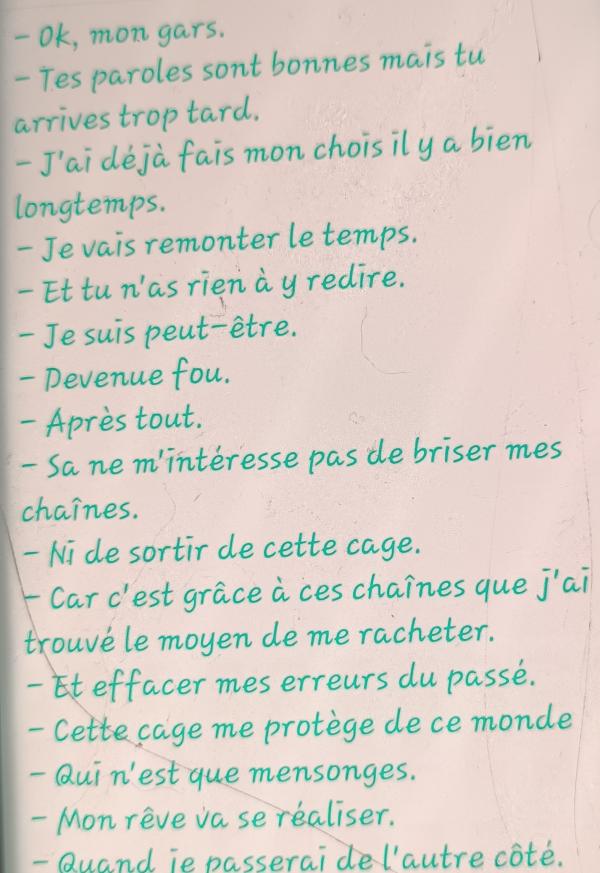 - Ok, mon gars.
- Tes paroles sont bonnes mais tu
arrives trop tard.
- J'ai déjà fais mon chois il y a bien
longtemps.
- Je vais remonter le temps.
- Et tu n'as rien à y redire.
- Je suis peut-être.
- Devenue fou.
- Après tout.
- Sa ne m'intéresse pas de briser mes
chaînes.
- Ni de sortir de cette cage.
- Car c'est grâce à ces chaînes que j'ai
trouvé le moyen de me racheter.
- Et effacer mes erreurs du passé.
- Cette cage me protège de ce monde
- Qui n'est que mensonges.
- Mon rêve va se réaliser.
- Quand je passerai de l'autre côté.